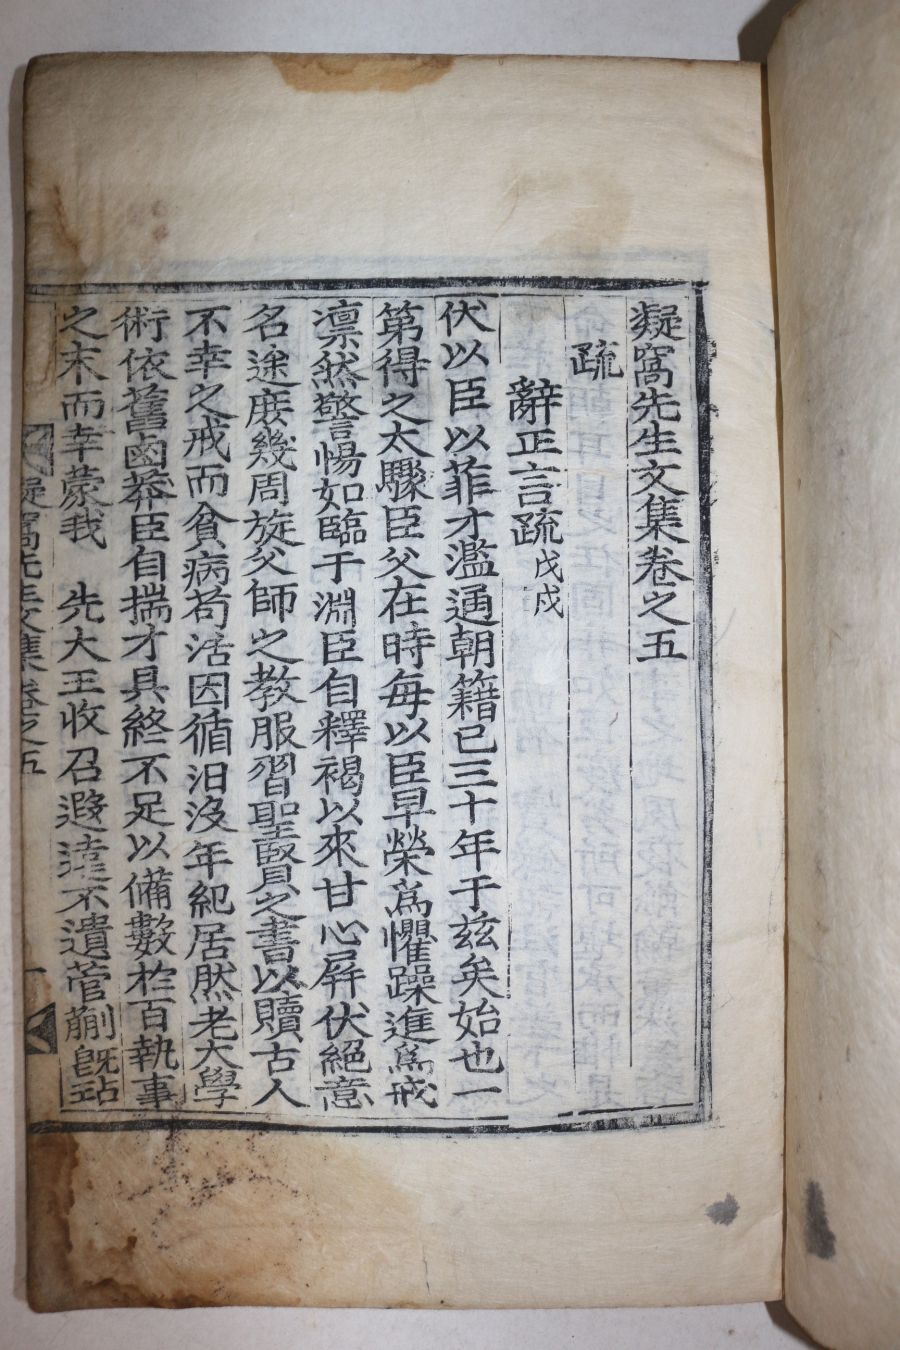 凝窩先生文集卷之五
疏
辭正言疏戊戌
伏以臣以菲才濫通朝籍已三十年于玆矣始也一
第得之太驟臣父在時每以臣早榮爲懼躁進爲戒
凛然警惕如臨于淵臣自釋褐以來甘心屛伏絕意
名途庶幾周旋父師之教服習聖賢之書以贖古人
不幸之戒而貧病苟活因循汨沒年紀居然老大學
術依舊鹵莽臣自揣才具終不足以備數於百執事
之末而幸蒙我 先大王收召遐逺不遺菅蒯旣玷
凝窩先生文集卷之五 一